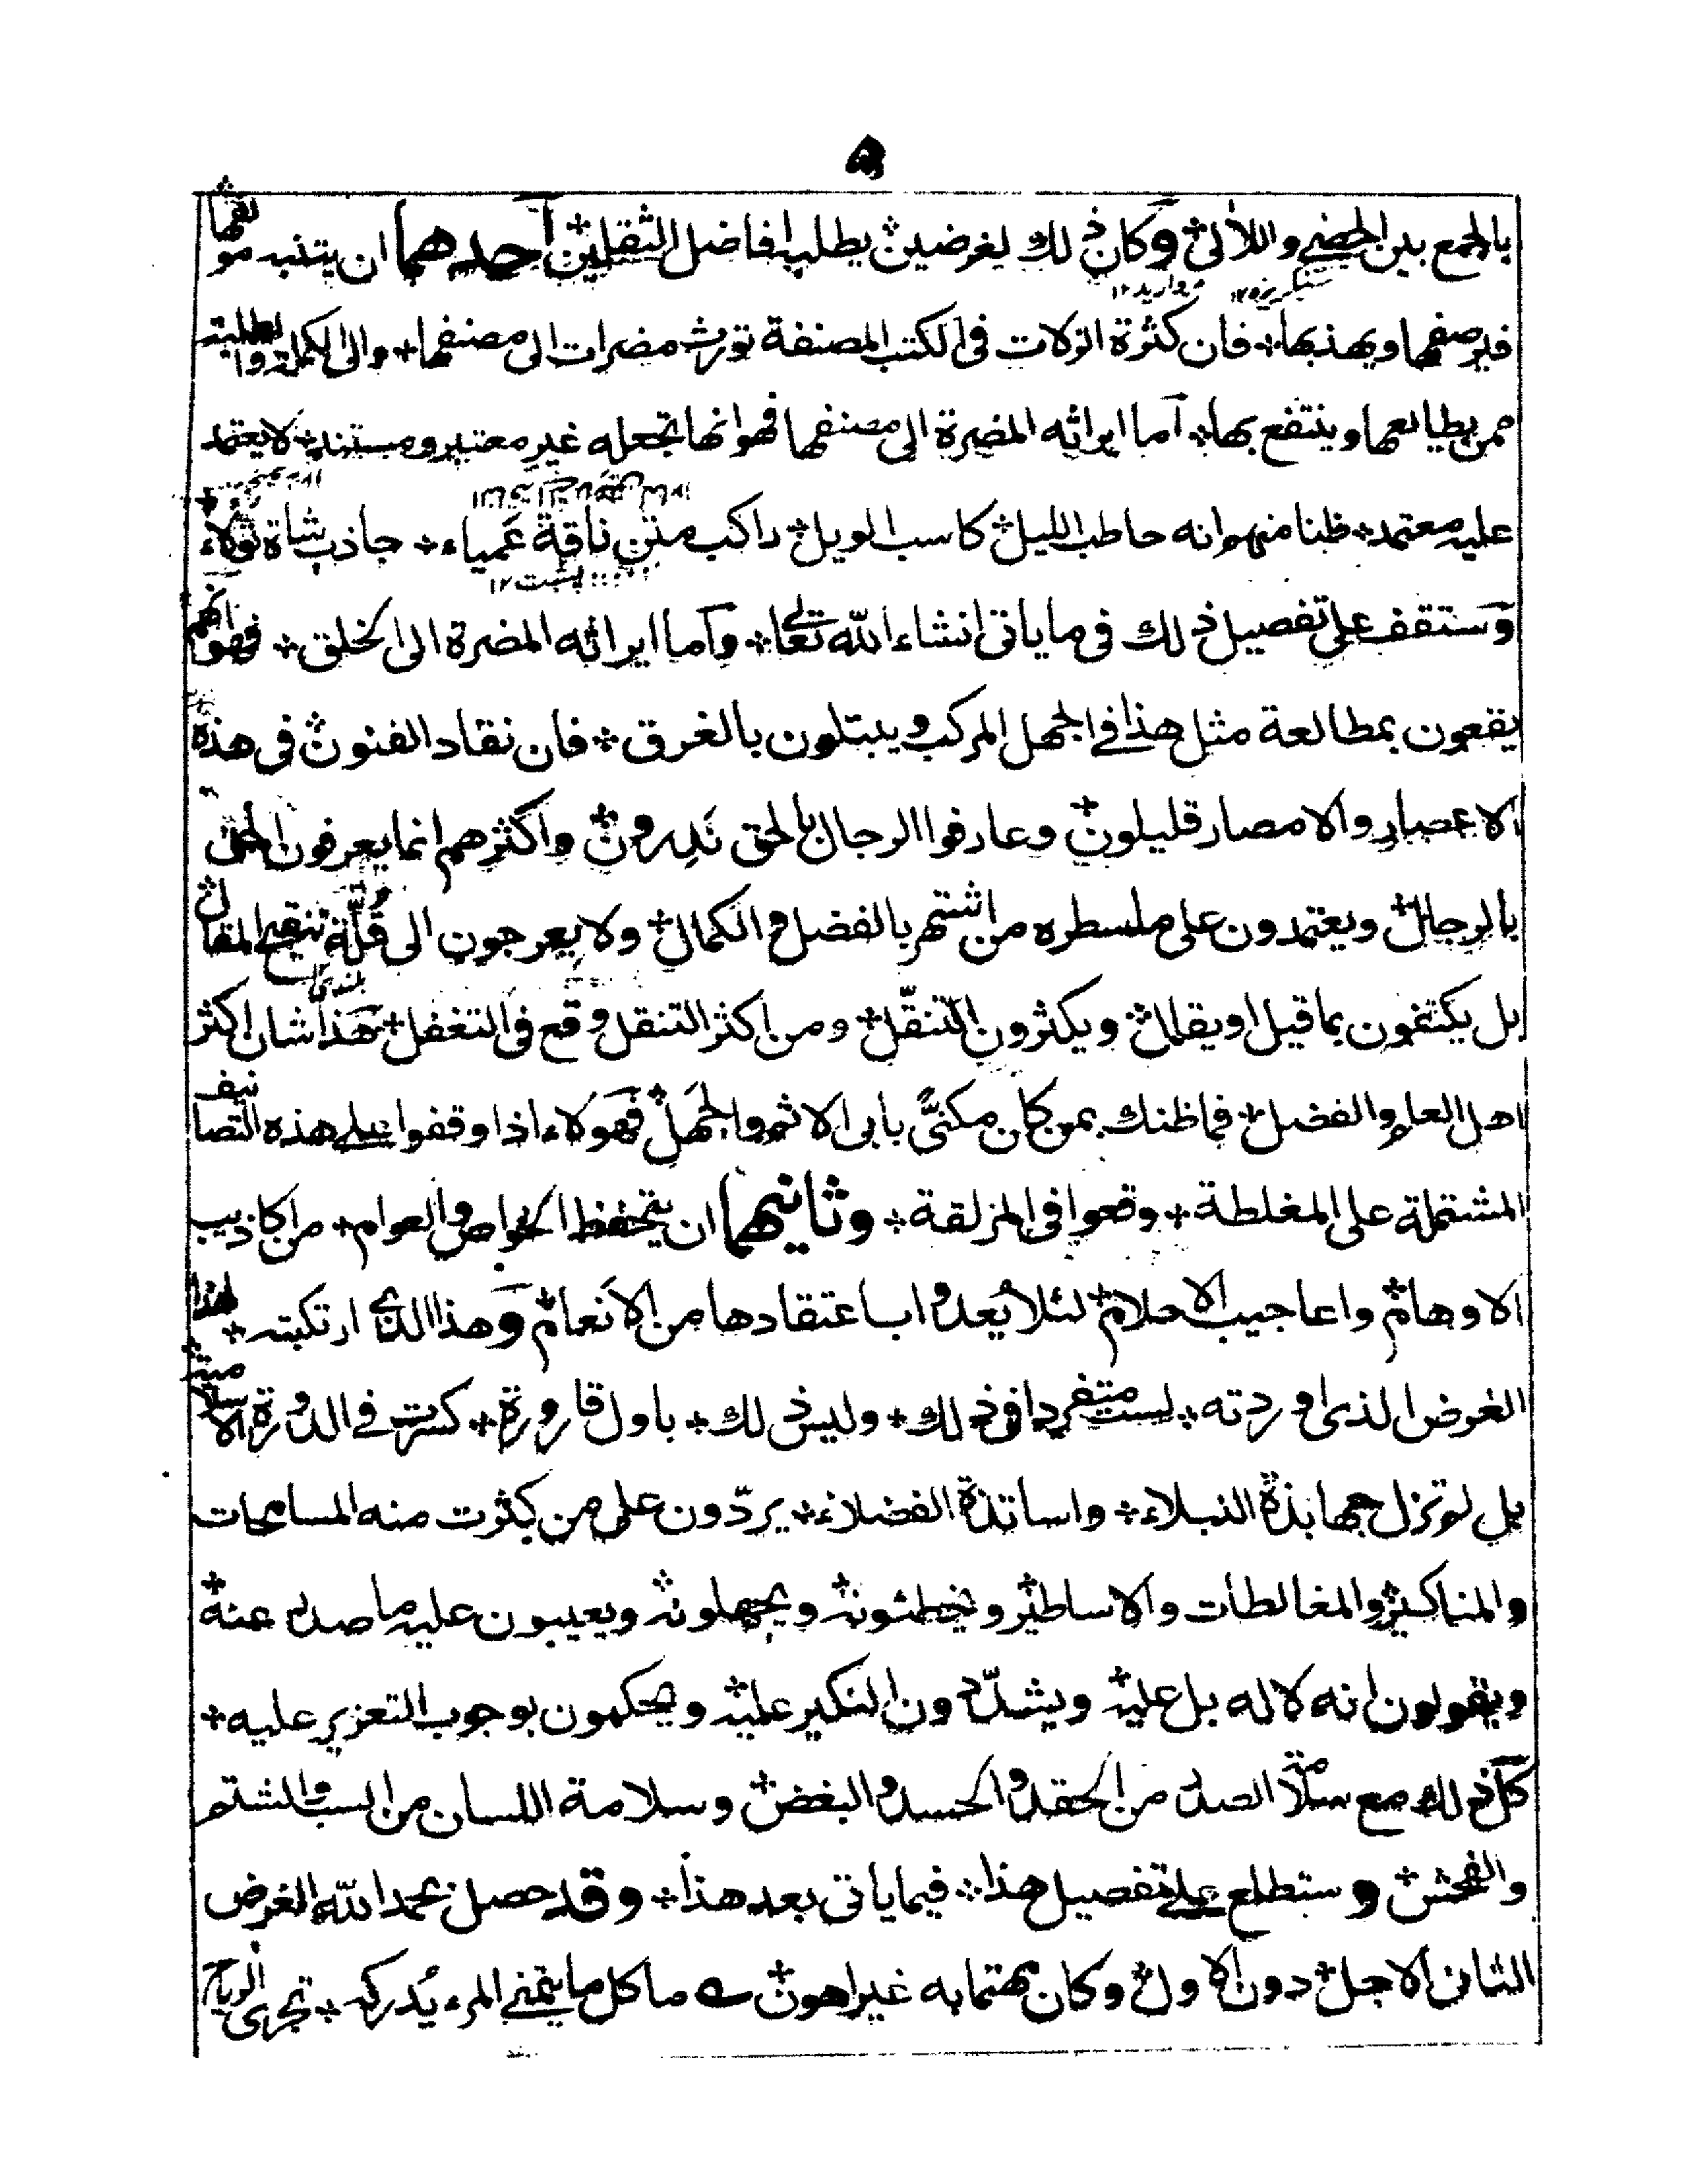 ٥
بالجمع بين الحضى واللآلى وكان ذلك لغرضين يطلبهما افاضل الثقلين احدهما ان يتنبه مؤلفها
فيرصفها ويهذبها فان كثرة الزلات فى الكتب المصنفة تورث مضرات الى مصنفها والى الكملة والطلبة
سنگریزه ۱۲ مروارید ۱۲
ممن يطالعها وينتفع بها اما ايراثه المضرة الى مصنفها فهو انها تجعله غير معتبر ومستند لا يعتمد
عليه معتمد ظنا منهم انه حاطب الليل كاسب الويل راكب متن ناقة عمياء جاذب شاة ثولاء
پشت ۱۲
وستقف على تفصيل ذلك فى ما ياتى انشاء الله تعالى واما ايراثه المضرة الى الخلق فهو انهم
يقعون بمطالعة مثل هذا فى الجهل المركب ويبتلون بالغرق فان نقاد الفنون فى هذه
الاعصار والامصار قليلون وعارفوا الرجال بالحق ندرون واكثرهم انما يعرفون الحق
بالرجال ويعتمدون على ما سطره من اشتهر بالفضل والكمال ولا يعرجون الى قلة تنقيح المقال
بلندی
بل يكتفون بما قيل او يقال ويكثرون التنقل ومن اكثر التنقل وقع فى التغفل هذا شان اكثر
اهل العلم والفضل فما ظنك بمن كان مكنى بابى الاثم والجهل فهولاء اذا وقفوا على هذه التصانيف
المشتملة على المغلطة وقعوا فى المزلقة وثانيهما ان يتحفظ الخواص والعوام من اكاذيب
الاوهام واعاجيب الاحلام لئلا يعدوا باعتقادها من الانعام وهذا الذى ارتكبته لهذا
الغرض الذى اوردته لست متفردا فى ذلك وليس ذلك باول قارورة كسرت فى الدورة الاسلامية
بل لم تزل جهابذة النبلاء واساتذة الفضلاء يردون على من كثرت منه المسامحات
والمناكير والمغالطات والاساطير ويخطئونه ويجهلونه ويعيبون عليه ما صدر عنه
ويقولون انه لا له بل عليه ويشددون النكير عليه ويحكمون بوجوب التعزير عليه
كل ذلك مع سلامة الصدر من الحقد والحسد والبغض وسلامة اللسان من السب والشتم
والفحش وستطلع على تفصيل هذا فيما ياتى بعد هذا وقد حصل بحمد الله الغرض
الثانى الاجل دون الاول وكان مهتما به غير اهون ؎ ما كل ما يتمنى المرء يدركه تجرى الرياح